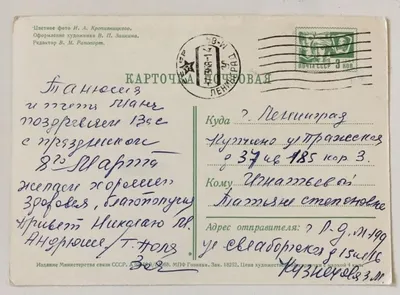 Цветное фото И. А.
Оформление художника В. П.
Редактор В. Н.
ЛЕНИНГРАД
ПОЧТА СССР
КАРТОЧКА ПОЧТОВАЯ
Танюша
и тетя Маня
поздравляем Вас
с праздником
8го Марта
желаем хорошего
Здоровья, благополучия
Привет Николаю М.
Андрюше / Т. Поля
Зоя
Куда г. Ленинград
Купчино ул Пражская
д 37 кв 185 кор 3.
Кому Игнатьевой
Татьяне степановне
Адрес отправителя: г Л-д, М-199
ул Свеаборгская д
Кузнецова З. М.
Издание Министерства связи СССР.